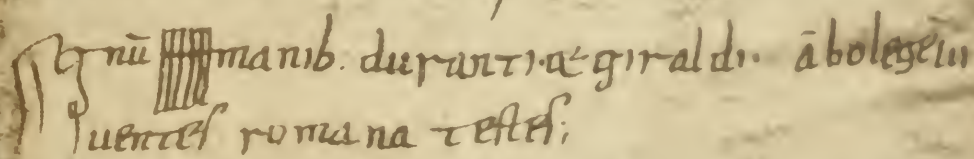 Signū manib. duranti. & giraldi. ābo legē ui
uentes romana testes;